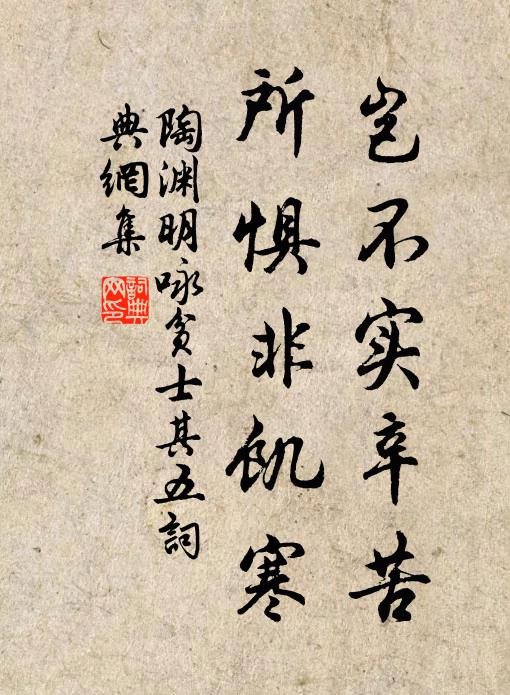 岂不实辛苦
所惧非饥寒
陶渊明咏贫士其五詞
典網集
詞典
网印